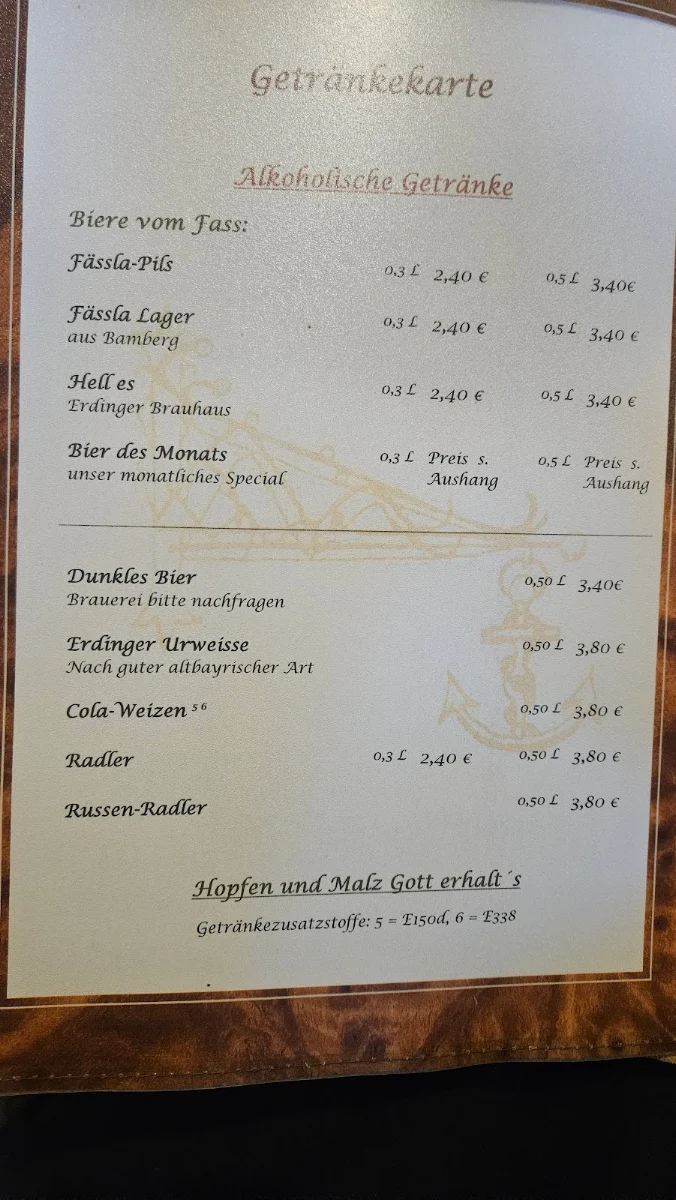 Getränkekarte
Alkoholische Getränke
Biere vom Fass:
Fässla-Pils 0,3 L 2,40 € 0,5 L 3,40€
Fässla Lager 0,3 L 2,40 € 0,5 L 3,40 €
aus Bamberg
Hell es 0,3 L 2,40 € 0,5 L 3,40 €
Erdinger Brauhaus
Bier des Monats 0,3 L Preis s. 0,5 L Preis s.
unser monatliches Special Aushang Aushang
Dunkles Bier 0,50 L 3,40€
Brauerei bitte nachfragen
Erdinger Urweisse 0,50 L 3,80 €
Nach guter altbayrischer Art
Cola-Weizen 5 6 0,50 L 3,80 €
Radler 0,3 L 2,40 € 0,50 L 3,80 €
Russen-Radler 0,50 L 3,80 €
Hopfen und Malz Gott erhalt´s
Getränkezusatzstoffe: 5 = E150d, 6 = E338